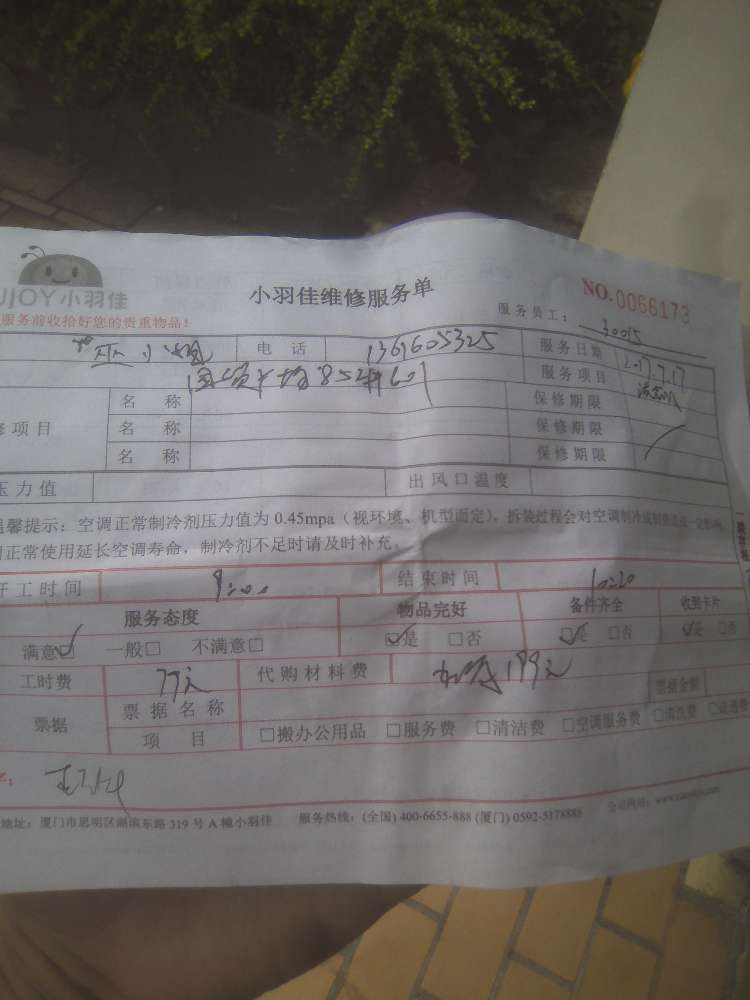 小羽佳维修服务单
NO.0066173
UJOY小羽佳
服务前收拾好您的贵重物品！
服务员工： 30015
电 话 1361605325 服务日期 2017.7.17
服务项目
名 称 保修期限
修项目 名 称 保修期限
名 称 保修期限
压力值 出风口温度
温馨提示：空调正常制冷剂压力值为 0.45mpa（视环境、机型而定），拆装过程会对空调制冷
正常使用延长空调寿命，制冷剂不足时请及时补充。
开工时间 9:00 结束时间 10:20
服务态度 物品完好 备件齐全 收到卡片
满意☑ 一般□ 不满意□ ☑是 □否 ☑是 □否 ☑是 □否
工时费 77元 代购材料费 199元
票据 票据名称 票据金额
项 目 □搬办公用品 □服务费 □清洁费 □空调服务费 □清洗费
地址：厦门市思明区湖滨东路 319 号 A 幢小羽佳 服务热线：(全国) 400-6655-888 (厦门) 0592-5178888 公司网站：